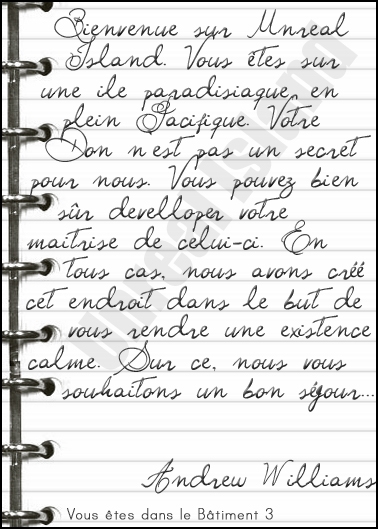 Bienvenue sur Unreal
Island. Vous êtes sur
une ile paradisiaque, en
plein Pacifique. Vôtre
Don n'est pas un secret
pour nous. Vous pouvez bien
sûr develloper votre
maitrise de celui-ci. En
tous cas, nous avons créé
cet endroit dans le but de
vous rendre une existence
calme. Sur ce, nous vous
souhaitons un bon séjour...
Andrew Williams
Vous êtes dans le Bâtiment 3
Unreal Island